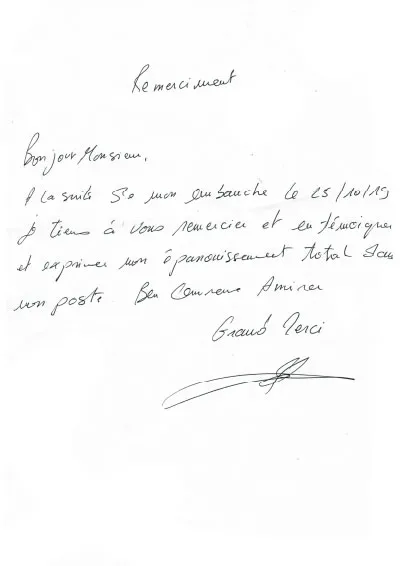 Remerciment
Bonjour Monsieur,
A La suite de mon embauche le 25/10/19
je tiens à vous remercier et en témoigner
et exprimer mon épanouissement total dans
mon poste. Ben
Grand Merci